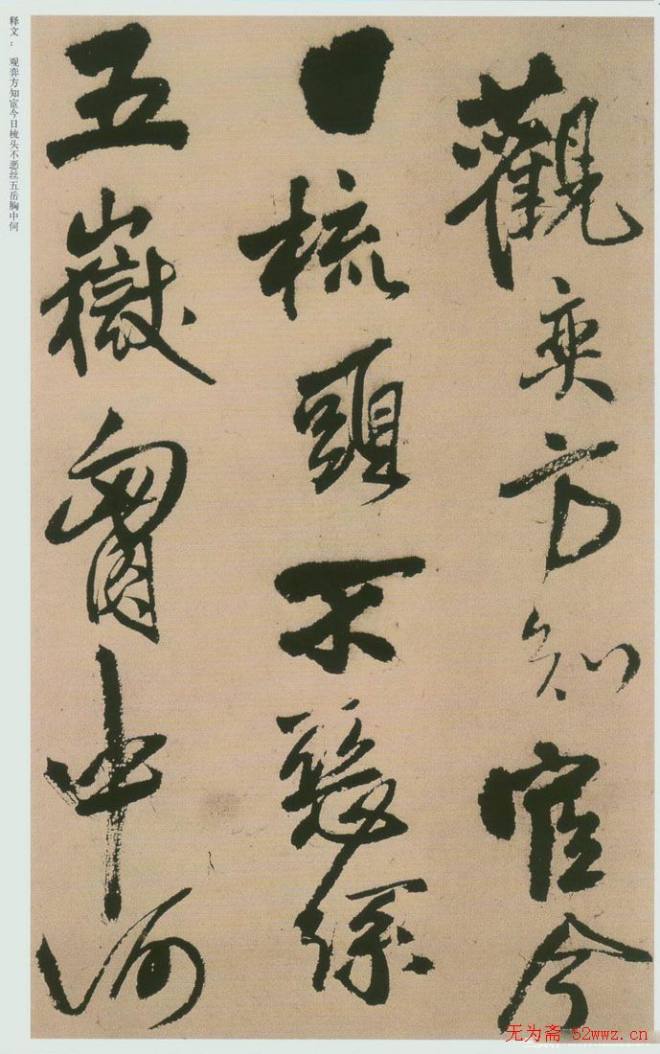 觀奕方知宦今
日梳頭不
五嶽胷中何
释文：观弈方知宦今日梳头不恶丝五岳胸中何
无为斋 52wwz.cn